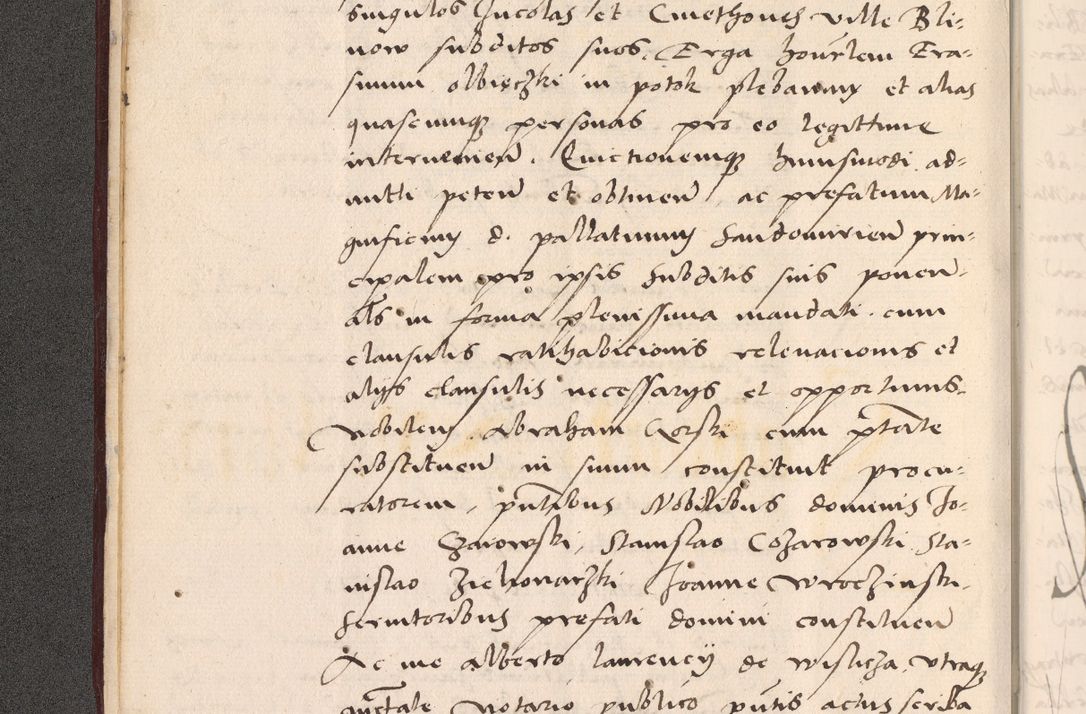 singulos Incolas et Cmethones ville Bli-
now subditos suos. Erga honrlem Era-
smum olbieczki in potok plebanum et alias
quascumque personas pro eo legittime
intervenien. Euictionemque huiusmodi ad-
mitti peten et obtinen, ac prefatum Ma-
gnificum d. pallatinum Sandomirien prin-
cipalem pro ipsis subditis suis ponen-
als in forma plenissima mandati. cum
clausulis ratihabicionis relevacionis et
alijs clausulis necessarijs et opportunis.
Nobilem Abraham Gorski cum ptate
substituen in suum constituit procu-
ratorem, pntibus Nobilibus dominis Jo-
anne Czaiowski, Stanislao Cozarowski, Sta-
nislao Zielionaczki Joanne Wroczinski.
Servitoribus prefati domini constituen
Ac me Alberto laurencij de Wislicza, utraque
auctate Notario publico pntis actus scriba